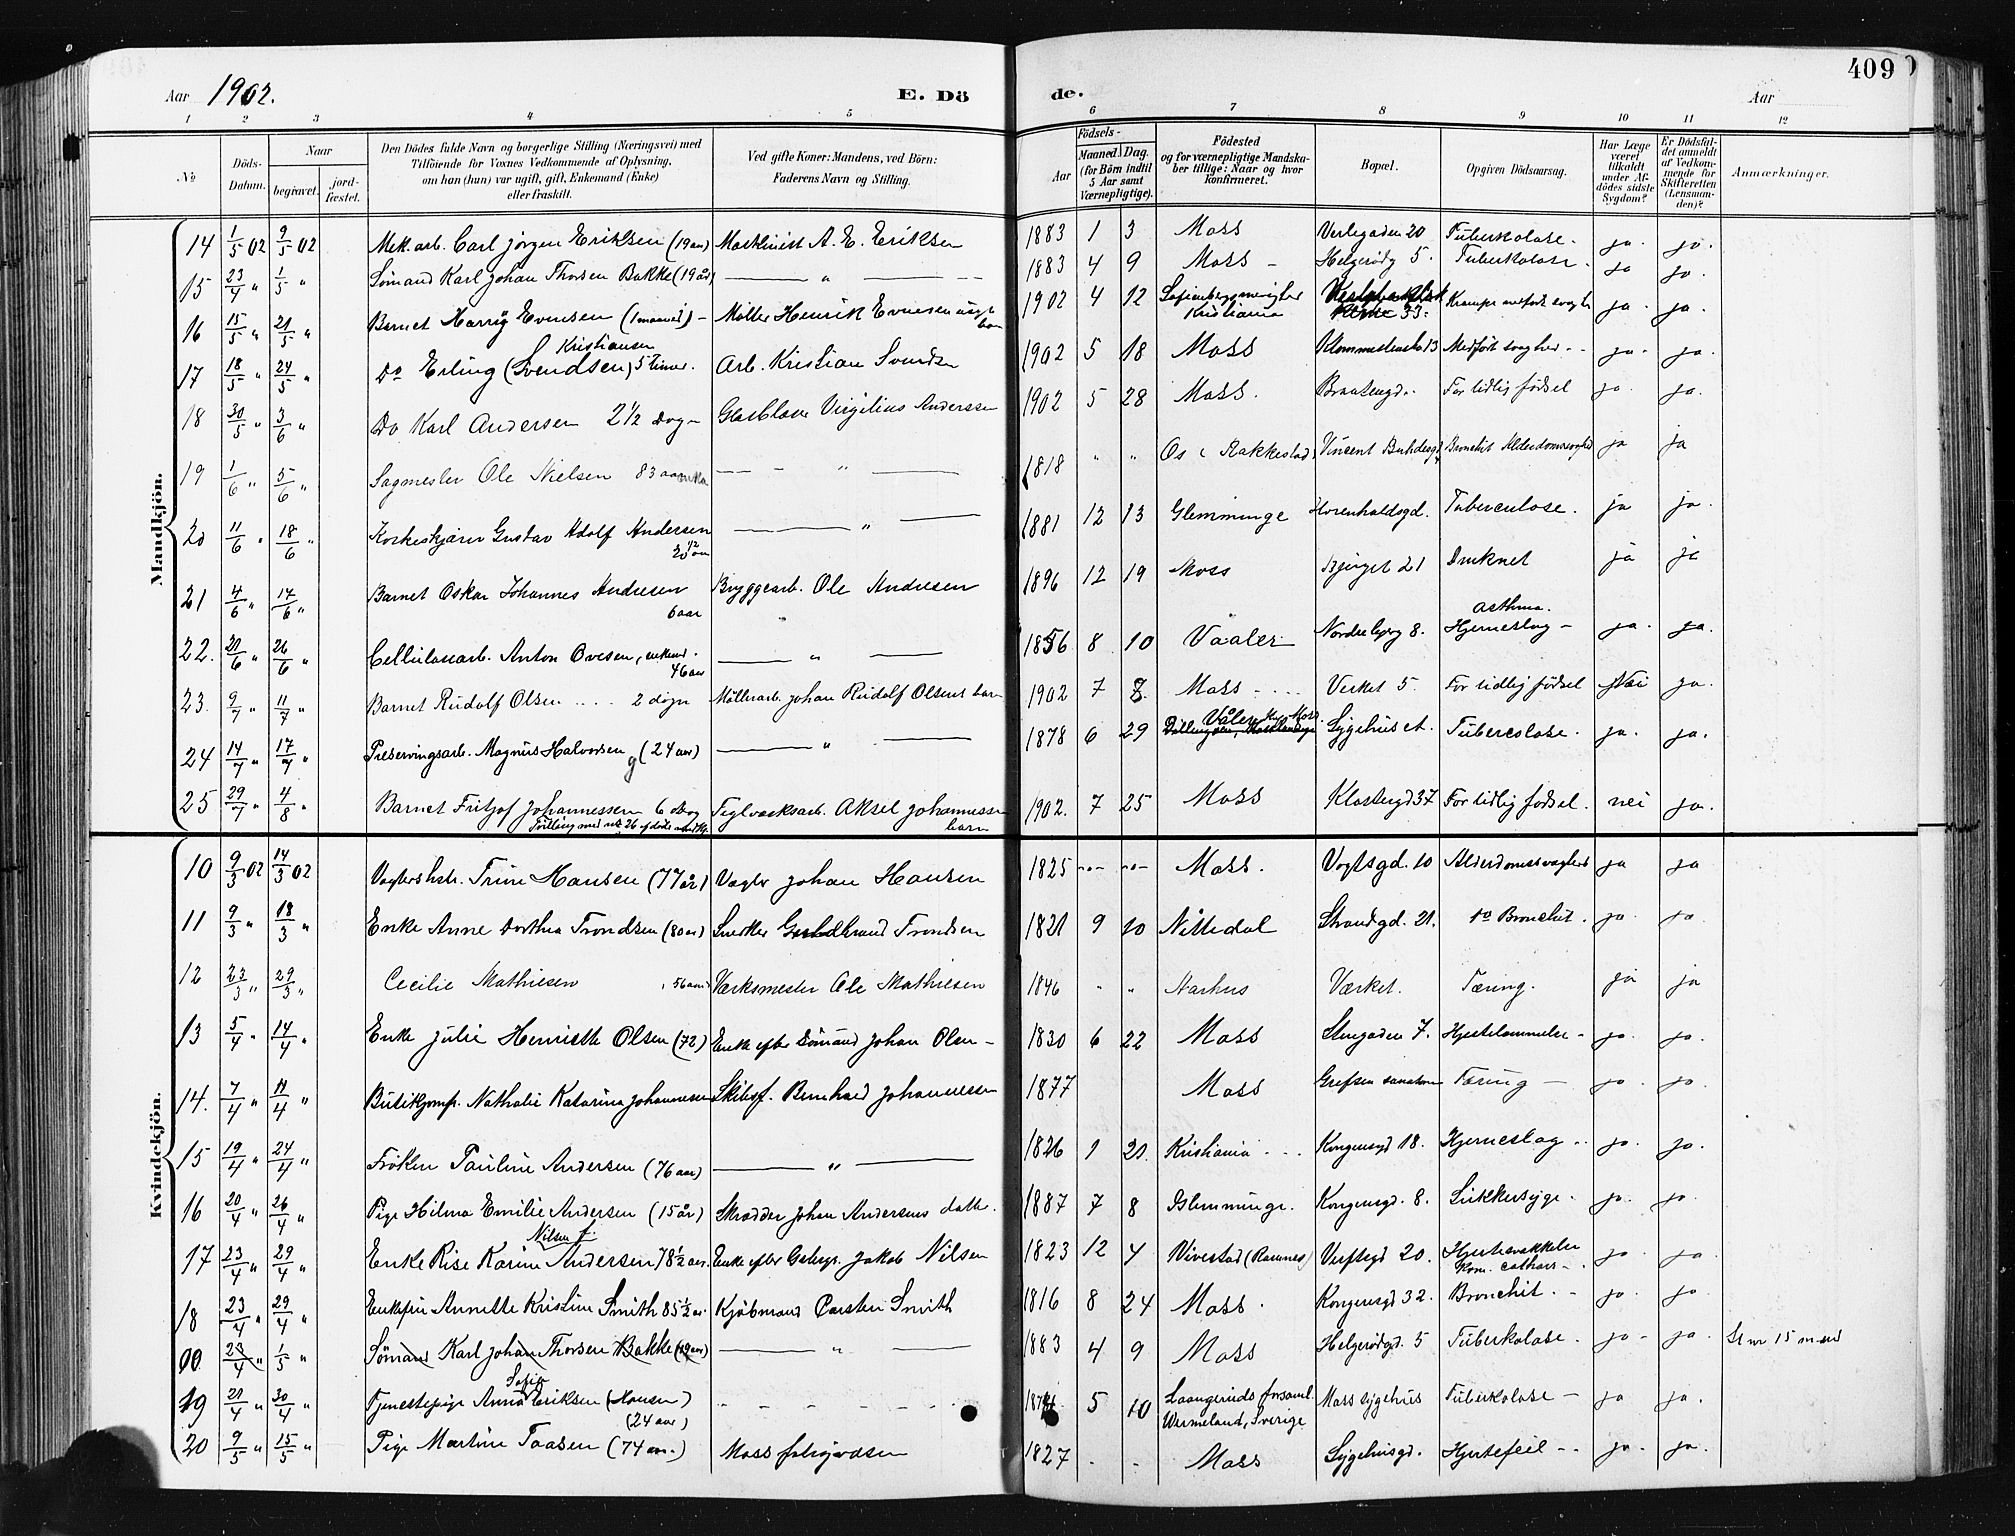 409
Aar 1902. E. Dö de. Aar
1 2 3 4 5 6 7 8 9 10 11 12
No
Döds-Datum.
Naar begravet. jordfæstet.
Den Dödes fulde Navn og borgerlige Stilling (Næringsvei) med Tilföiende for Voxnes Vedkommende af Oplysning, om han (hun) var ugift, gift, Enkemand (Enke) eller fraskilt.
Ved gifte Koner: Mandens, ved Börn: Faderens Navn og Stilling.
Födsels- Aar Maaned. Dag. (for Börn indtil 5 Aar samt Værnepligtige).
Födested og for værnepligtige Mandskaber tillige: Naar og hvor konfirmeret.
Bopæl.
Opgiven Dödsaarsag.
Har Læge været tilkaldt under Afdödes sidste Sygdom?
Er Dödsfaldet anmeldt af Vedkommende for Skifteretten (Lensmanden)?
Anmærkninger.
Mandkjön.
14 1/5 02 9/5 02 Mek. arb. Carl Jörgen Eriksen (19 aar) Maskinist A. E. Eriksen 1883 1 3 Moss Verlegaden 20 Tuberkolose. ja. ja.
15 23/4 " 1/5 " Sømand Karl Johan Thorsen Bakke (19 år) — " — 1883 4 9 Moss - Helgerødg 5. Tuberkolose. ja ja.
16 15/5 " 21/5 " Barnet Harry Evensen (1 maaned) - Møller Henrik Evensen 1902 4 12 Kristiania 33. Krampe medfødt svaghed ja. ja.
17 18/5 " 24/5 " Do Erling Kristiansen (Svendsen) 5 timer. Arb. Kristian Svendsen 1902 5 18 Moss 13 Medfødt svaghed - - ja. ja.
18 30/5 " 3/6 " Do Karl Andersen 2 1/2 Døgn Virgilius Anderssen 1902 5 28 Moss. Braatengd. For tidlig fødsel ja. ja.
19 1/6 " 5/6 " Sagmester Ole Nielsen 83 aar — " — 1818 " " Os i Rakkestad Vincent Alderdomssvaghed ja ja
20 11/6 " 18/6 " Gustav Adolf Andersen 20 1/2 aar — " — 1881 12 13 Glemminge Tuberculose. ja ja.
21 4/6 " 17/6 " Barnet Oskar Johannes Andresen 6 aar Bryggearb. Ole Andresen 1896 12 19 Moss Bjerget 21 Druknet ja ja
22. 21/6 " 26/6 " Cellulosearb. Anton Ovesen, enkem. 46 aar — " — 1856 8 10 Vaaler Nordre bjerg 8. asthma. Hjerneslag - ja. ja.
23. 9/7 " 11/7 " Barnet Rudolf Olsen .... 2 døgn Møllerarb. Johan Rudolf Olsens barn 1902 7 8 Moss - ... Verket 5. For tidlig fødsel Nei ja.
24 14/7 " 17/7 " Preservingsarb. Magnus Halvorsen g (24 aar) — " — 1878 6 29 Våler Moss. Sygehuset. Tuberculose. ja. ja.
25 29/7 " 4/8 " Barnet Fritjof Johannessen 6 døg Teglværksarb. Aksel Johannessen barn 1902. 7 25 Moss Klostergd 37 For tidlig fødsel. nei ja.
Tvilling med nr. 26 af døde
Kvindekjön.
10 9/3 02 14/3 02 Vagtershstr. Trine Hansen (77 år) Vagter Johan Hansen 1825 -"- -"- Moss. Vogtsgd. 10 Alderdomssvaghed ja ja
11 9/3 " 18/3 " Enke Anne Dorthea Trondsen (80 aar) Snedker Guldbrand Trondsen 1821 9 10 Nittedal Strandgd. 21. Do Bronchit. ja. ja
12 23/3 " 29/3 " Cecilie Mathiesen 56 aar Værksmester Ole Mathiesen 1846 " " Aarhus Værket. Tæring. ja ja
13 5/4 " 14/4 " Enke Julie Henriette Olsen (72) Enke efter Sömand Johan Olsen - 1830 6 22 Moss Stengaden 7. Hjertelammelse - ja. ja.
14. 7/4 " 11/4 " Butikjomf. Nathalie Katarina Johannessen Skibsf. Bernhard Johannessen 1877 Moss Grefsen sanatorie Tæring - ja. ja.
15 19/4 " 24/4 " Frøken Pauline Andersen (76 aar) — " — 1826 1 21. Kristiania ... Kongensgd 18. Hjerneslag .. ja. ja.
16 20/4 " 26/4 " Pige Hilma Emilie Andersen (15 år) Skrædder Johan Andersens datter. 1887 7 8 Glemminge. Kongensgd. 8. Sukkersyge. ja. ja.
17 23/4 " 29/4 " Enke Rise Karine Nilsen f. Andersen 78 1/2 aar. Enke efter Jakob Nilsen 1823 12 4 Vivestad (Ramnes) Verftsgd 20. Hjertesvakkelse Kron. catharr - ja. ja
18 23/4 " 29/4 " Enkefru Annette Kristine Smith 85 1/2 aar. Kjöbmand Carsten Smith 1816 8 24 Moss. Kongensgd 32. Bronchit. - ja. ja.
00 23/4 " 1/5 " Sömand Karl Johan Thorsen Bakke (19 aar) — " — 1883 4 9 Moss Helgerødgd. 5 Tuberkolose. ja - ja. Se nr 15 m.
19 21/4 " 30/4 " Tjenestepige Anna Sofie Eriksen (Hansen) (24 aar) - - - - 5 10 Laangeruds forsaml. Wermeland, Sverige Moss sygehus Tuberkolose - ja ja.
20 9/5 " 15/5 " Pige Martine Taasen (74 aar.) Moss fattigvæsen 1827 - - Moss Sygehusgd. Hjertefeil - . ja. ja.